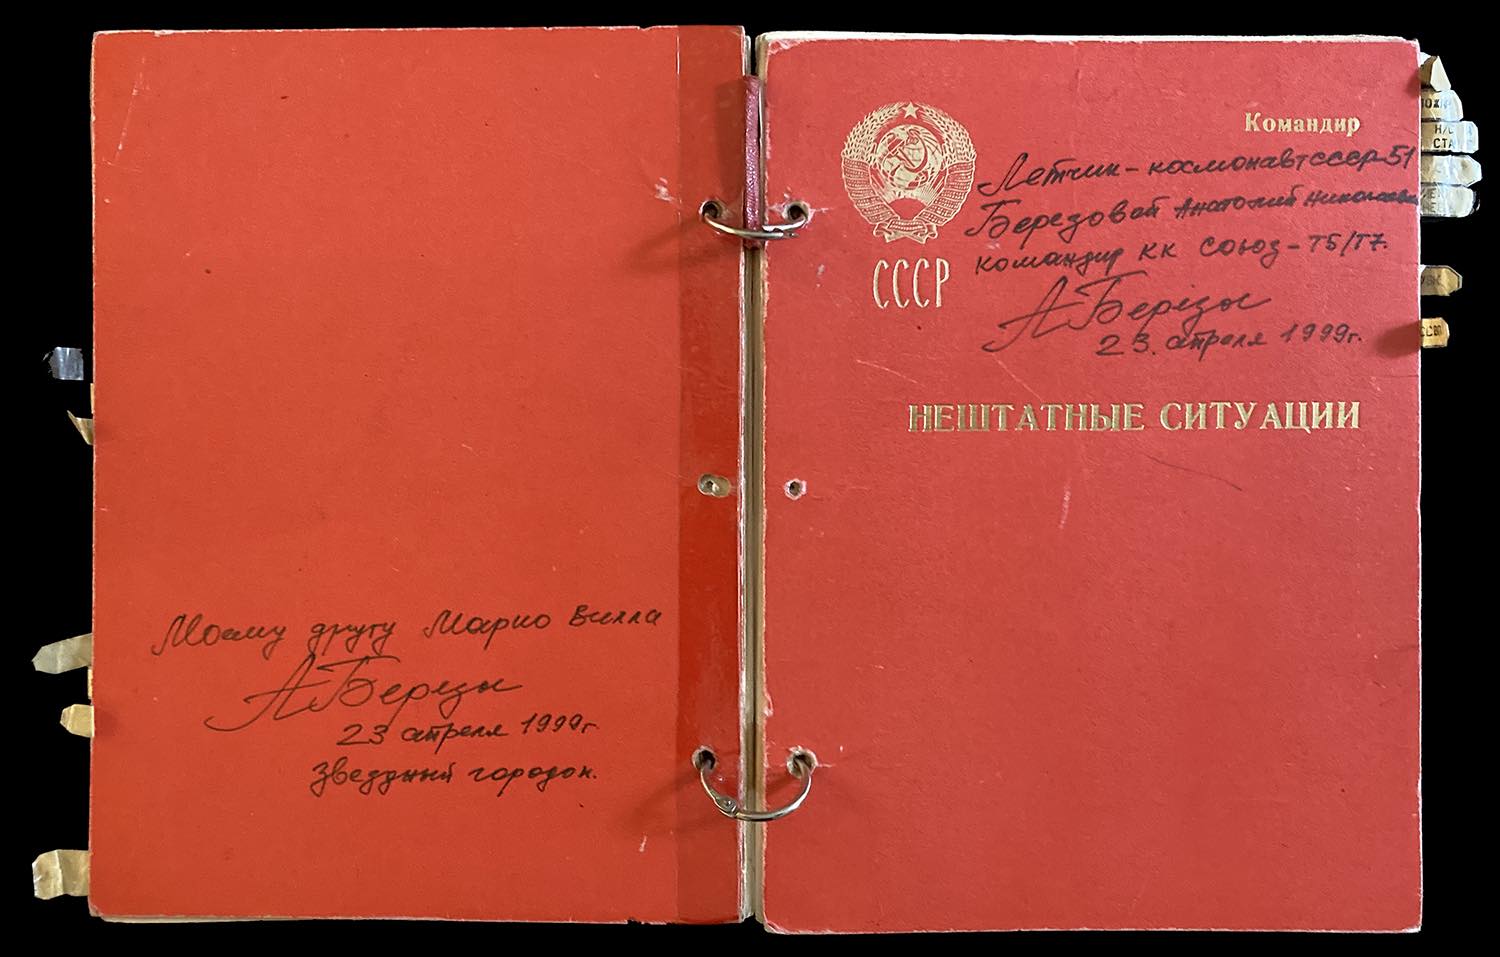 Моему другу Марио Вилла
А Березы
23 апреля 1999г.
Звездный городок.
Командир
Летчик-космонавт СССР-51
Березовой Анатолий Николаевич
командир КК СОЮЗ-Т5/Т7.
А Березы
23. апреля 1999г.
СССР
НЕШТАТНЫЕ СИТУАЦИИ
Н/С
СТА